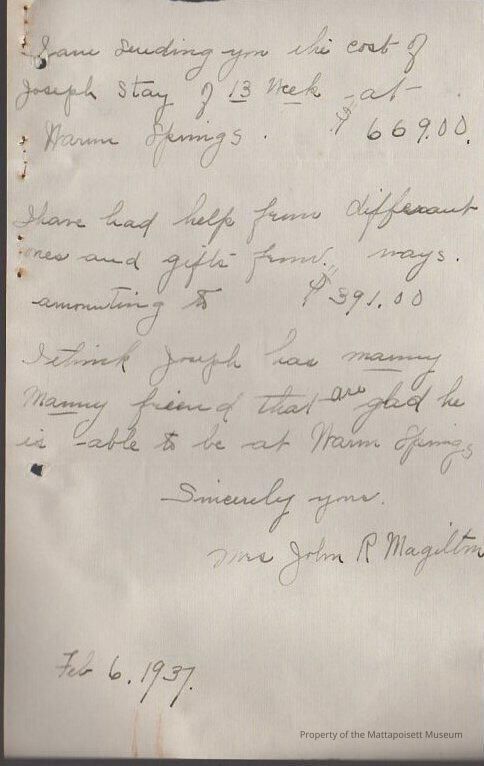 I am sending you the cost of
Joseph Stay of 13 Week at
Warm Springs. $669.00.
I have had help from differant
ones and gifts from. ways.
amounting to $391.00
I think Joseph has manny
Manny friend that are glad he
is able to be at Warm Springs
Sincerely yours.
Mrs John R Magilton
Feb 6. 1937.
Property of the Mattapoisett Museum